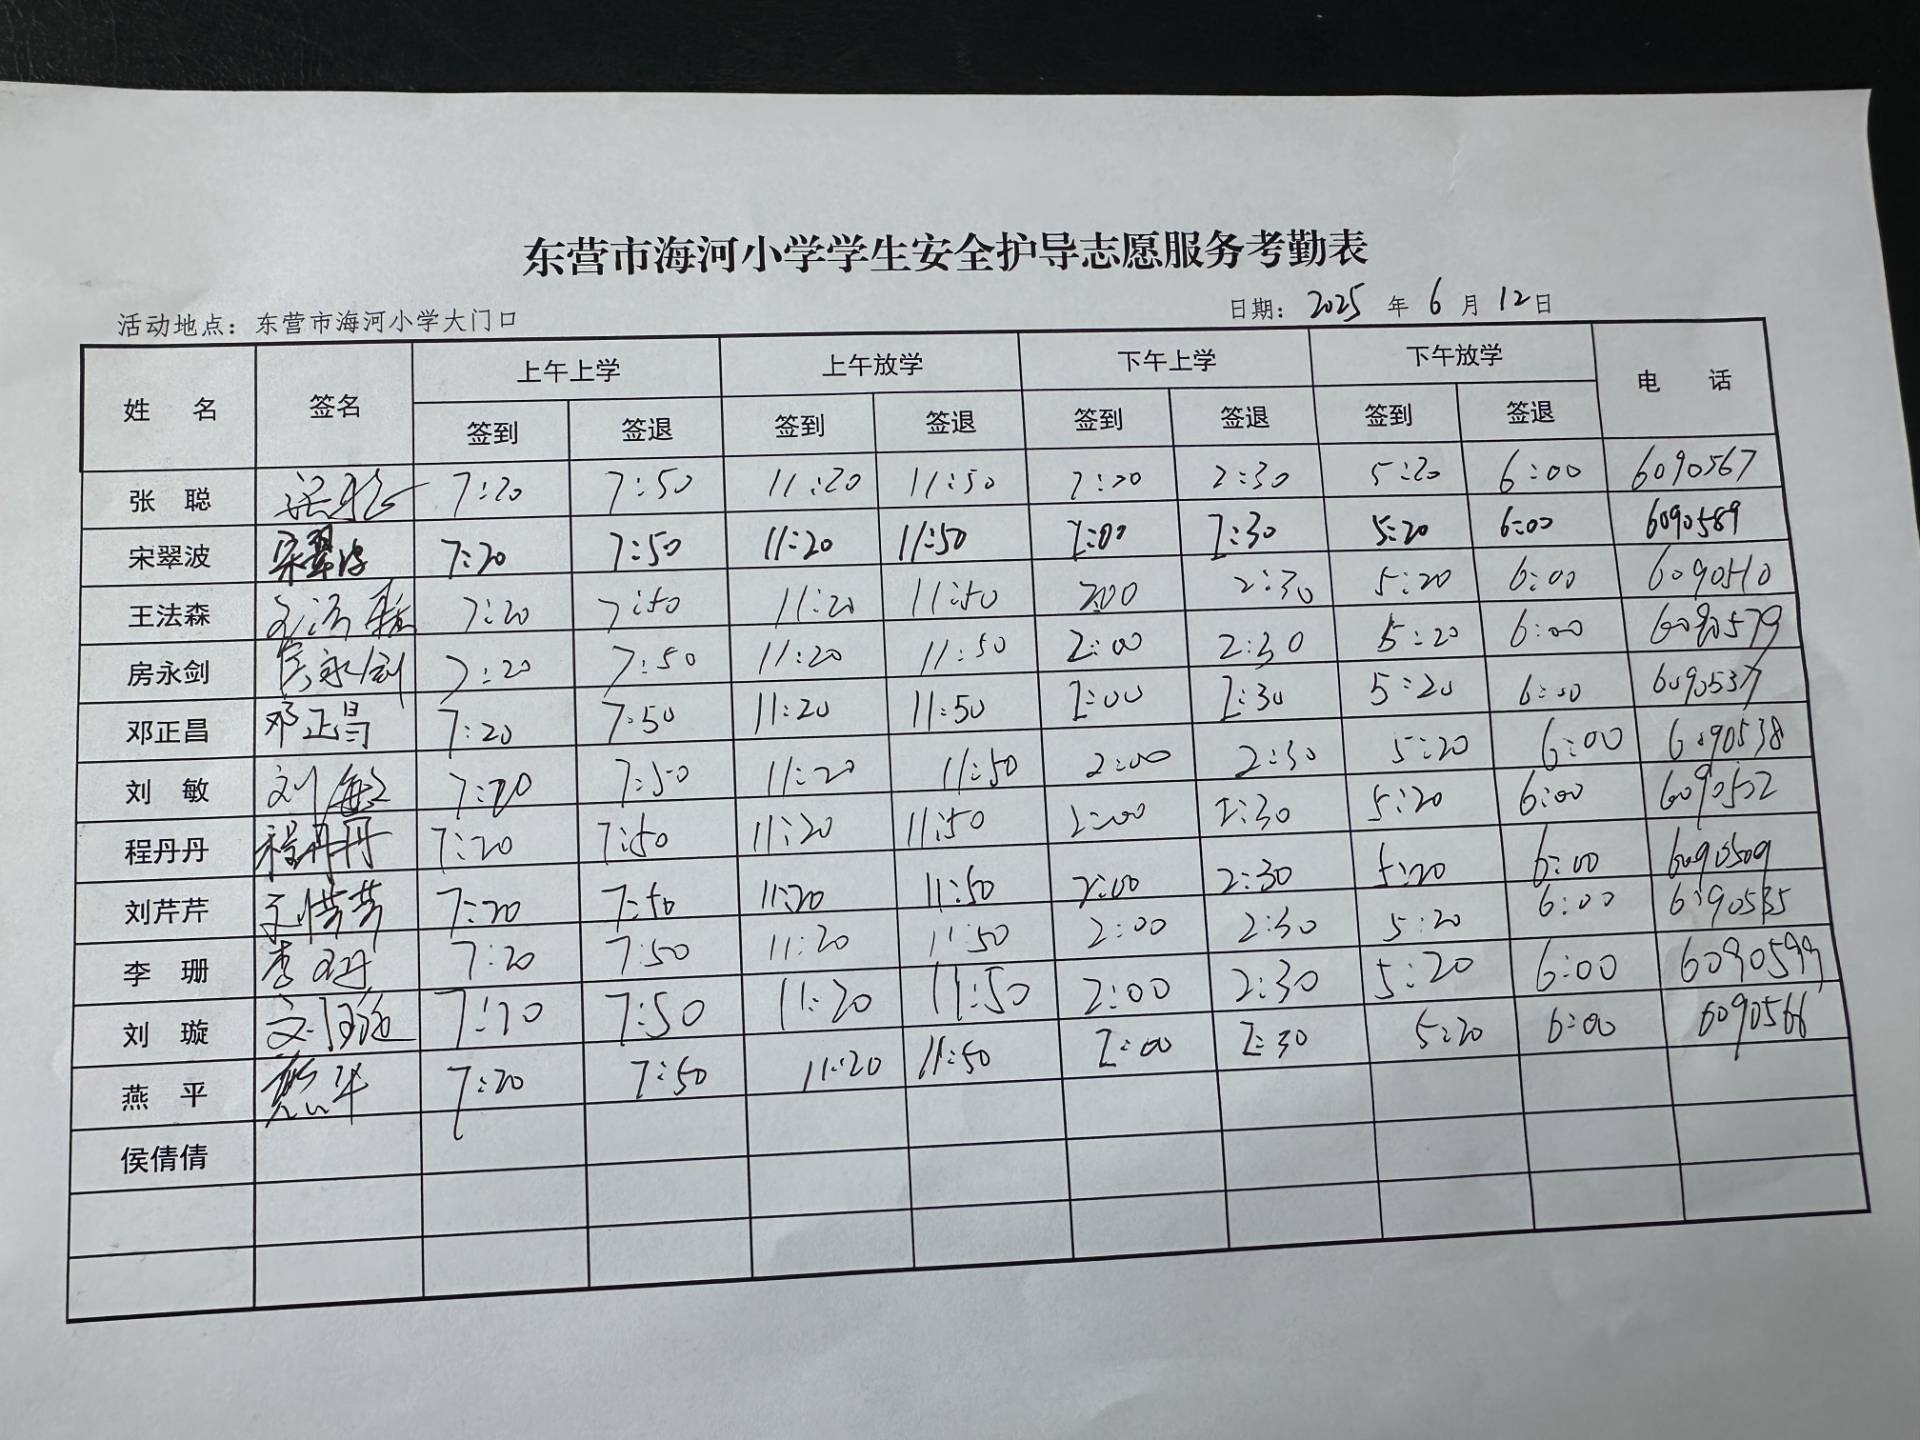 东营市海河小学学生安全护导志愿服务考勤表
活动地点：东营市海河小学大门口 日期：2025 年 6 月 12 日
姓 名 签名 上午上学 上午放学 下午上学 下午放学 电 话
签到 签退 签到 签退 签到 签退 签到 签退
张 聪 7:20 7:50 11:20 11:50 2:00 2:30 5:20 6:00 6090567
宋翠波 宋翠波 7:20 7:50 11:20 11:50 2:00 2:30 5:20 6:00 6090589
王法森 7:20 7:50 11:20 11:50 2:00 2:30 5:20 6:00 6090510
房永剑 房永剑 7:20 7:50 11:20 11:50 2:00 2:30 5:20 6:00 6090579
邓正昌 邓正昌 7:20 7:50 11:20 11:50 2:00 2:30 5:20 6:00 6090537
刘 敏 刘敏 7:20 7:50 11:20 11:50 2:00 2:30 5:20 6:00 6090538
程丹丹 程丹丹 7:20 7:50 11:20 11:50 2:00 2:30 5:20 6:00 6090532
刘芹芹 7:20 7:50 11:20 11:50 2:00 2:30 5:20 6:00 6090509
李 珊 李珊 7:20 7:50 11:20 11:50 2:00 2:30 5:20 6:00 6090535
刘 璇 7:20 7:50 11:20 11:50 2:00 2:30 5:20 6:00 6090599
燕 平 燕平 7:20 7:50 11:20 11:50 2:00 2:30 5:20 6:00 6090566
侯倩倩